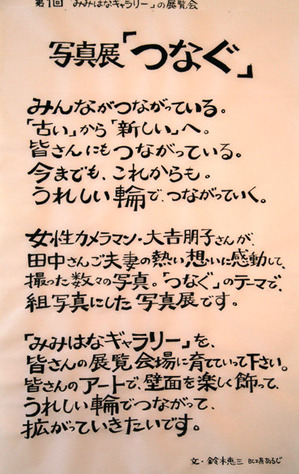 第1回 みみはなギャラリー」の展覧会
写真展「つなぐ」
みんながつながっている。
「古い」から「新しい」へ。
皆さんにもつながっている。
今までも、これからも。
うれしい輪で、つながっていく。
女性カメラマン・大吉朋子さんが、
田中さんご夫妻の熱い想いに感動して、
撮った数々の写真。「つなぐ」のテーマで、
組写真にした写真展です。
「みみはなギャラリー」を、
皆さんの展覧会場に育てていって下さい。
皆さんのアートで、壁面を楽しく飾って、
うれしい輪でつながって、
拡がっていきたいです。
文・鈴木恵三